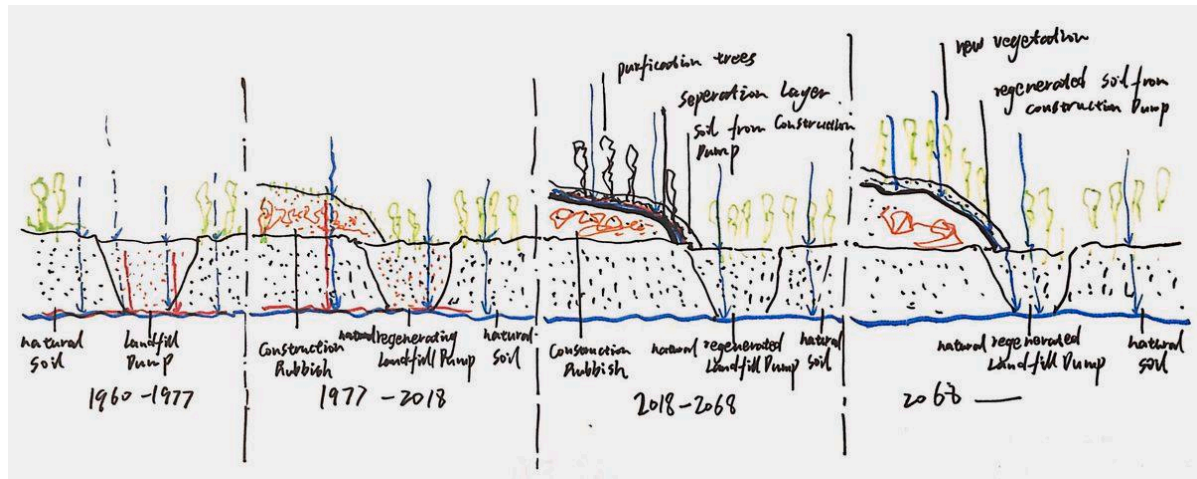 natural
soil
Landfill
Dump
1960-1977
Construction
Rubbish
natural
regenerating
Landfill Dump
natural
soil
1977-2018
purification trees
seperation Layer
soil from Construction
Dump
Construction
Rubbish
natural
regenerated
Landfill Dump
natural
soil
2018-2068
new vegetation
regenerated soil from
construction Dump
natural
regenerated
Landfill Dump
natural
soil
2068 —